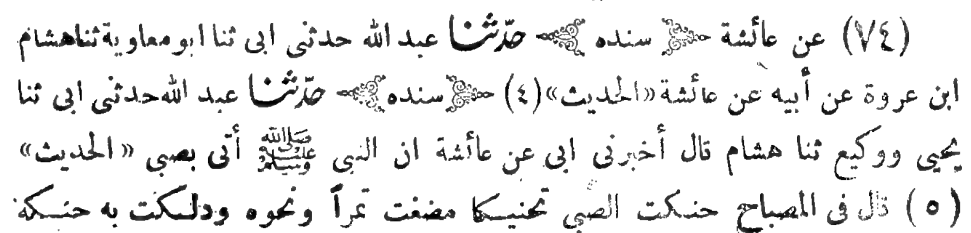 (٧٤) عن عائشة ﴿ سنده ﴾ حدّثنا عبد الله حدثنى ابى ثنا ابو معاوية ثنا هشام
ابن عروة عن أبيه عن عائشة «الحديث» (٤) ﴿ سنده ﴾ حدّثنا عبد الله حدثنى ابى ثنا
يحيى ووكيع ثنا هشام قال أخبرنى ابى عن عائشة ان النبى ﷺ أتى بصبى «الحديث»
(٥) قال فى المصباح حنكت الصبى تحنيكا مضغت تمراً ونحوه ودلكت به حنكه